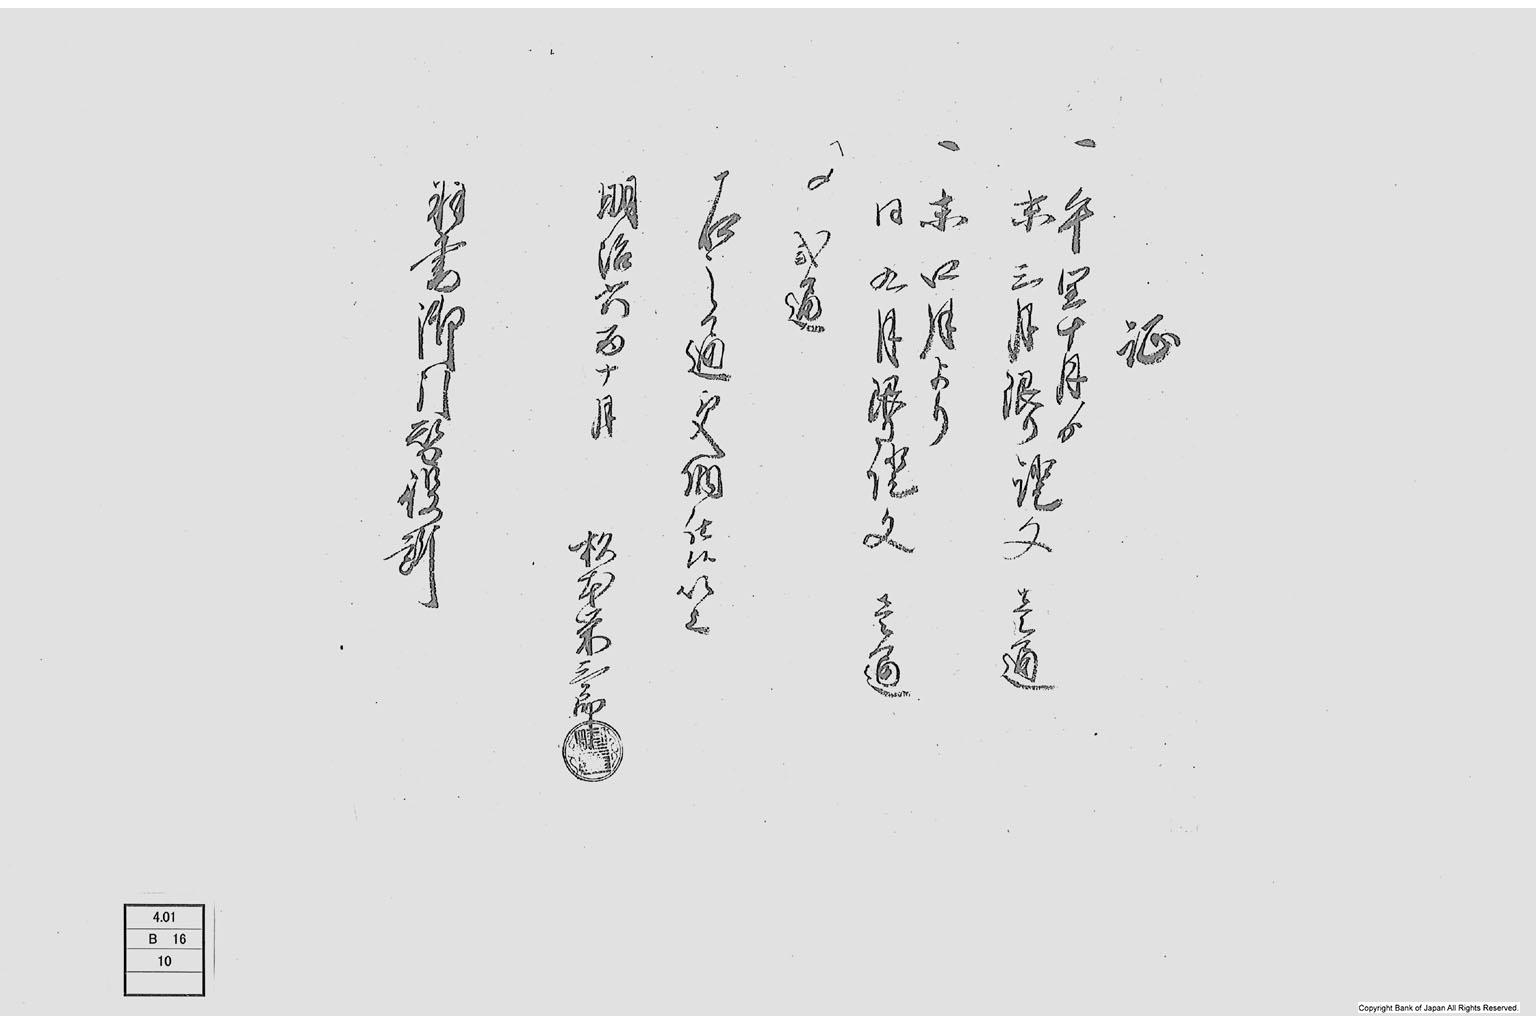 証
一 午閏十月ゟ
未三月限り證文 壱通
一 未四月より
同九月限り證文 壱通
〆 弐通
右之通 仕候以上
明治六酉十月
松本栄三郎
羽書御 役所
4.01
B 16
10
Copyright Bank of Japan All Rights Reserved.